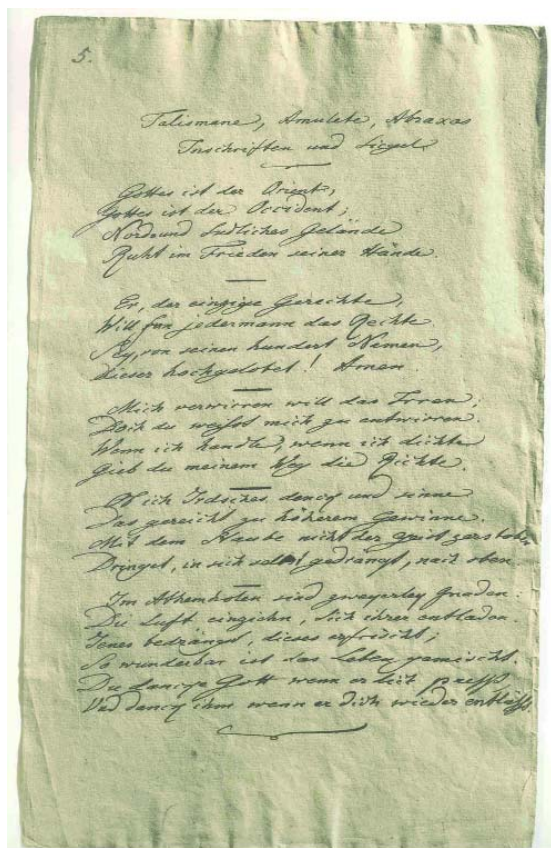 5.
Talismane, Amulete, Abraxas
Inschriften und Siegel.
Gottes ist der Orient,
Gottes ist der Occident;
Nord und südliches Gelände
Ruht im Frieden seiner Hände.
Er, der einzige Gerechte,
Will für jedermann das Rechte.
Sey, von seinen hundert Namen,
Dieser hochgelobet! Amen.
Mich verwirren will das Irren;
Doch du weisst mich zu entwirren.
Wenn ich handle, wenn ich dichte
Gieb du meinem Weg die Richte.
Ob ich Irdsches denck und sinne
Das gereicht zu höherem Gewinne.
Mit dem Staube nicht der Geist zerstoben
Dringet, in sich selbst gedrängt, nach oben.
Im Athemholen sind zweyerley Gnaden:
Die Luft einziehn, sich ihrer entladen.
Jenes bedrängt, dieses erfrischt;
So wunderbar ist das Leben gemischt.
Du dancke Gott wenn er dich presst
Und danck ihm wenn er dich wieder entlässt.